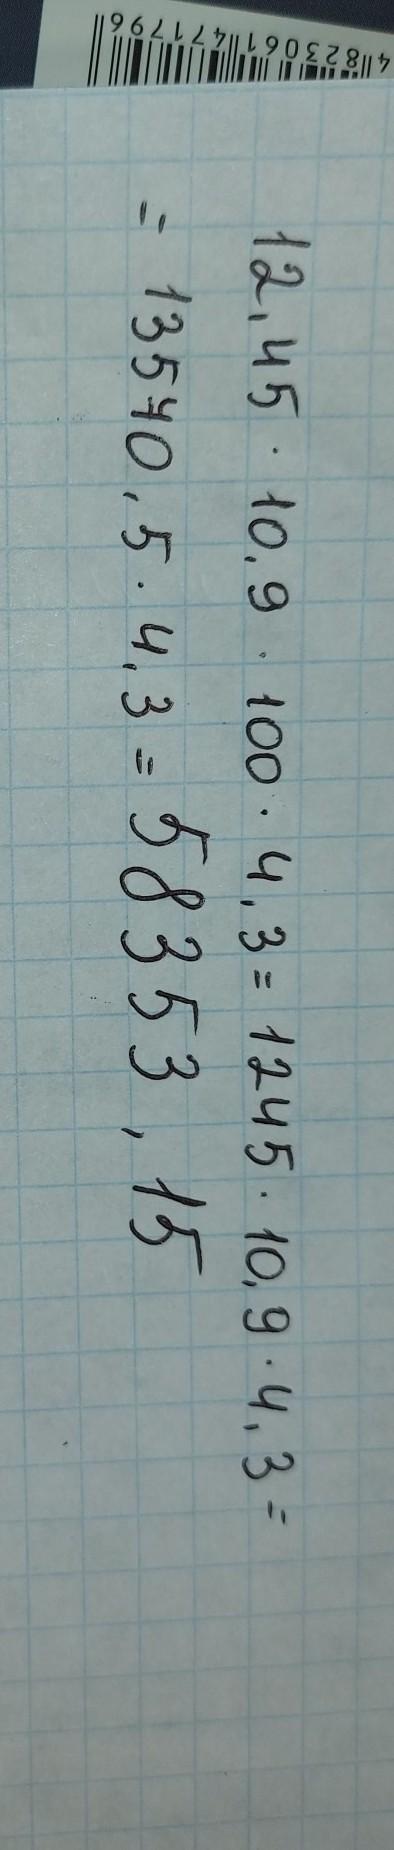 4823061471796
12,45 · 10,9 · 100 · 4,3 = 1245 · 10,9 · 4,3 =
= 13570,5 · 4,3 = 58353,15